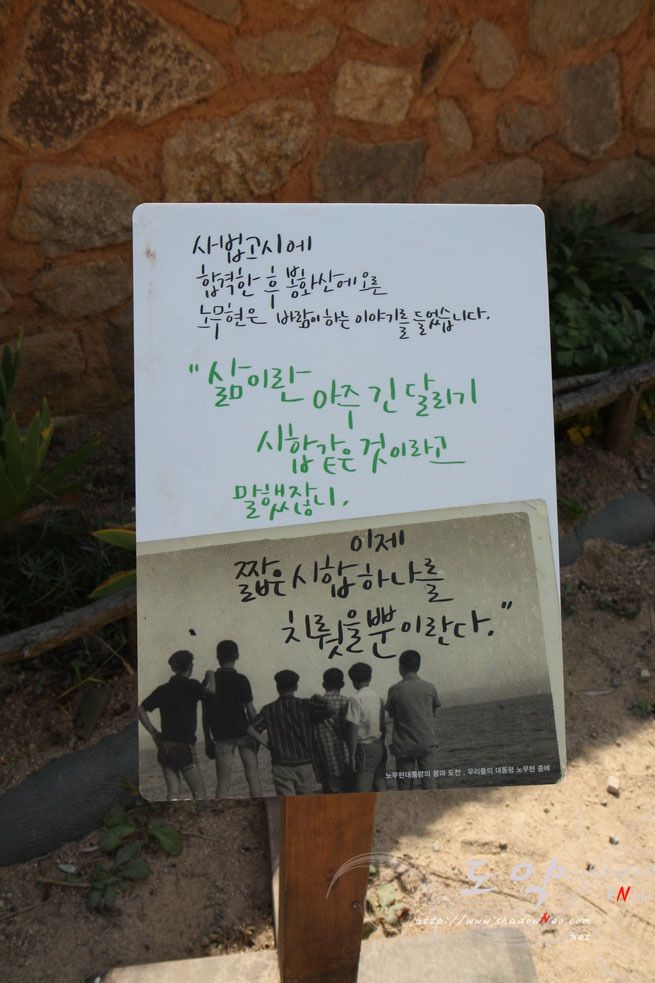 사법고시에
합격한 후 봉화산에 오른
노무현은 바람이 하는 이야기를 들었습니다.
"삶이란 아주 긴 달리기
시합같은 것이라고
말했잖니.
이제
짧은 시합 하나를
치뤘을 뿐이란다."
노무현대통령의 꿈과 도전 . 우리들의 대통령 노무현 중에
도약
http://www.shadowNoo.com
.net